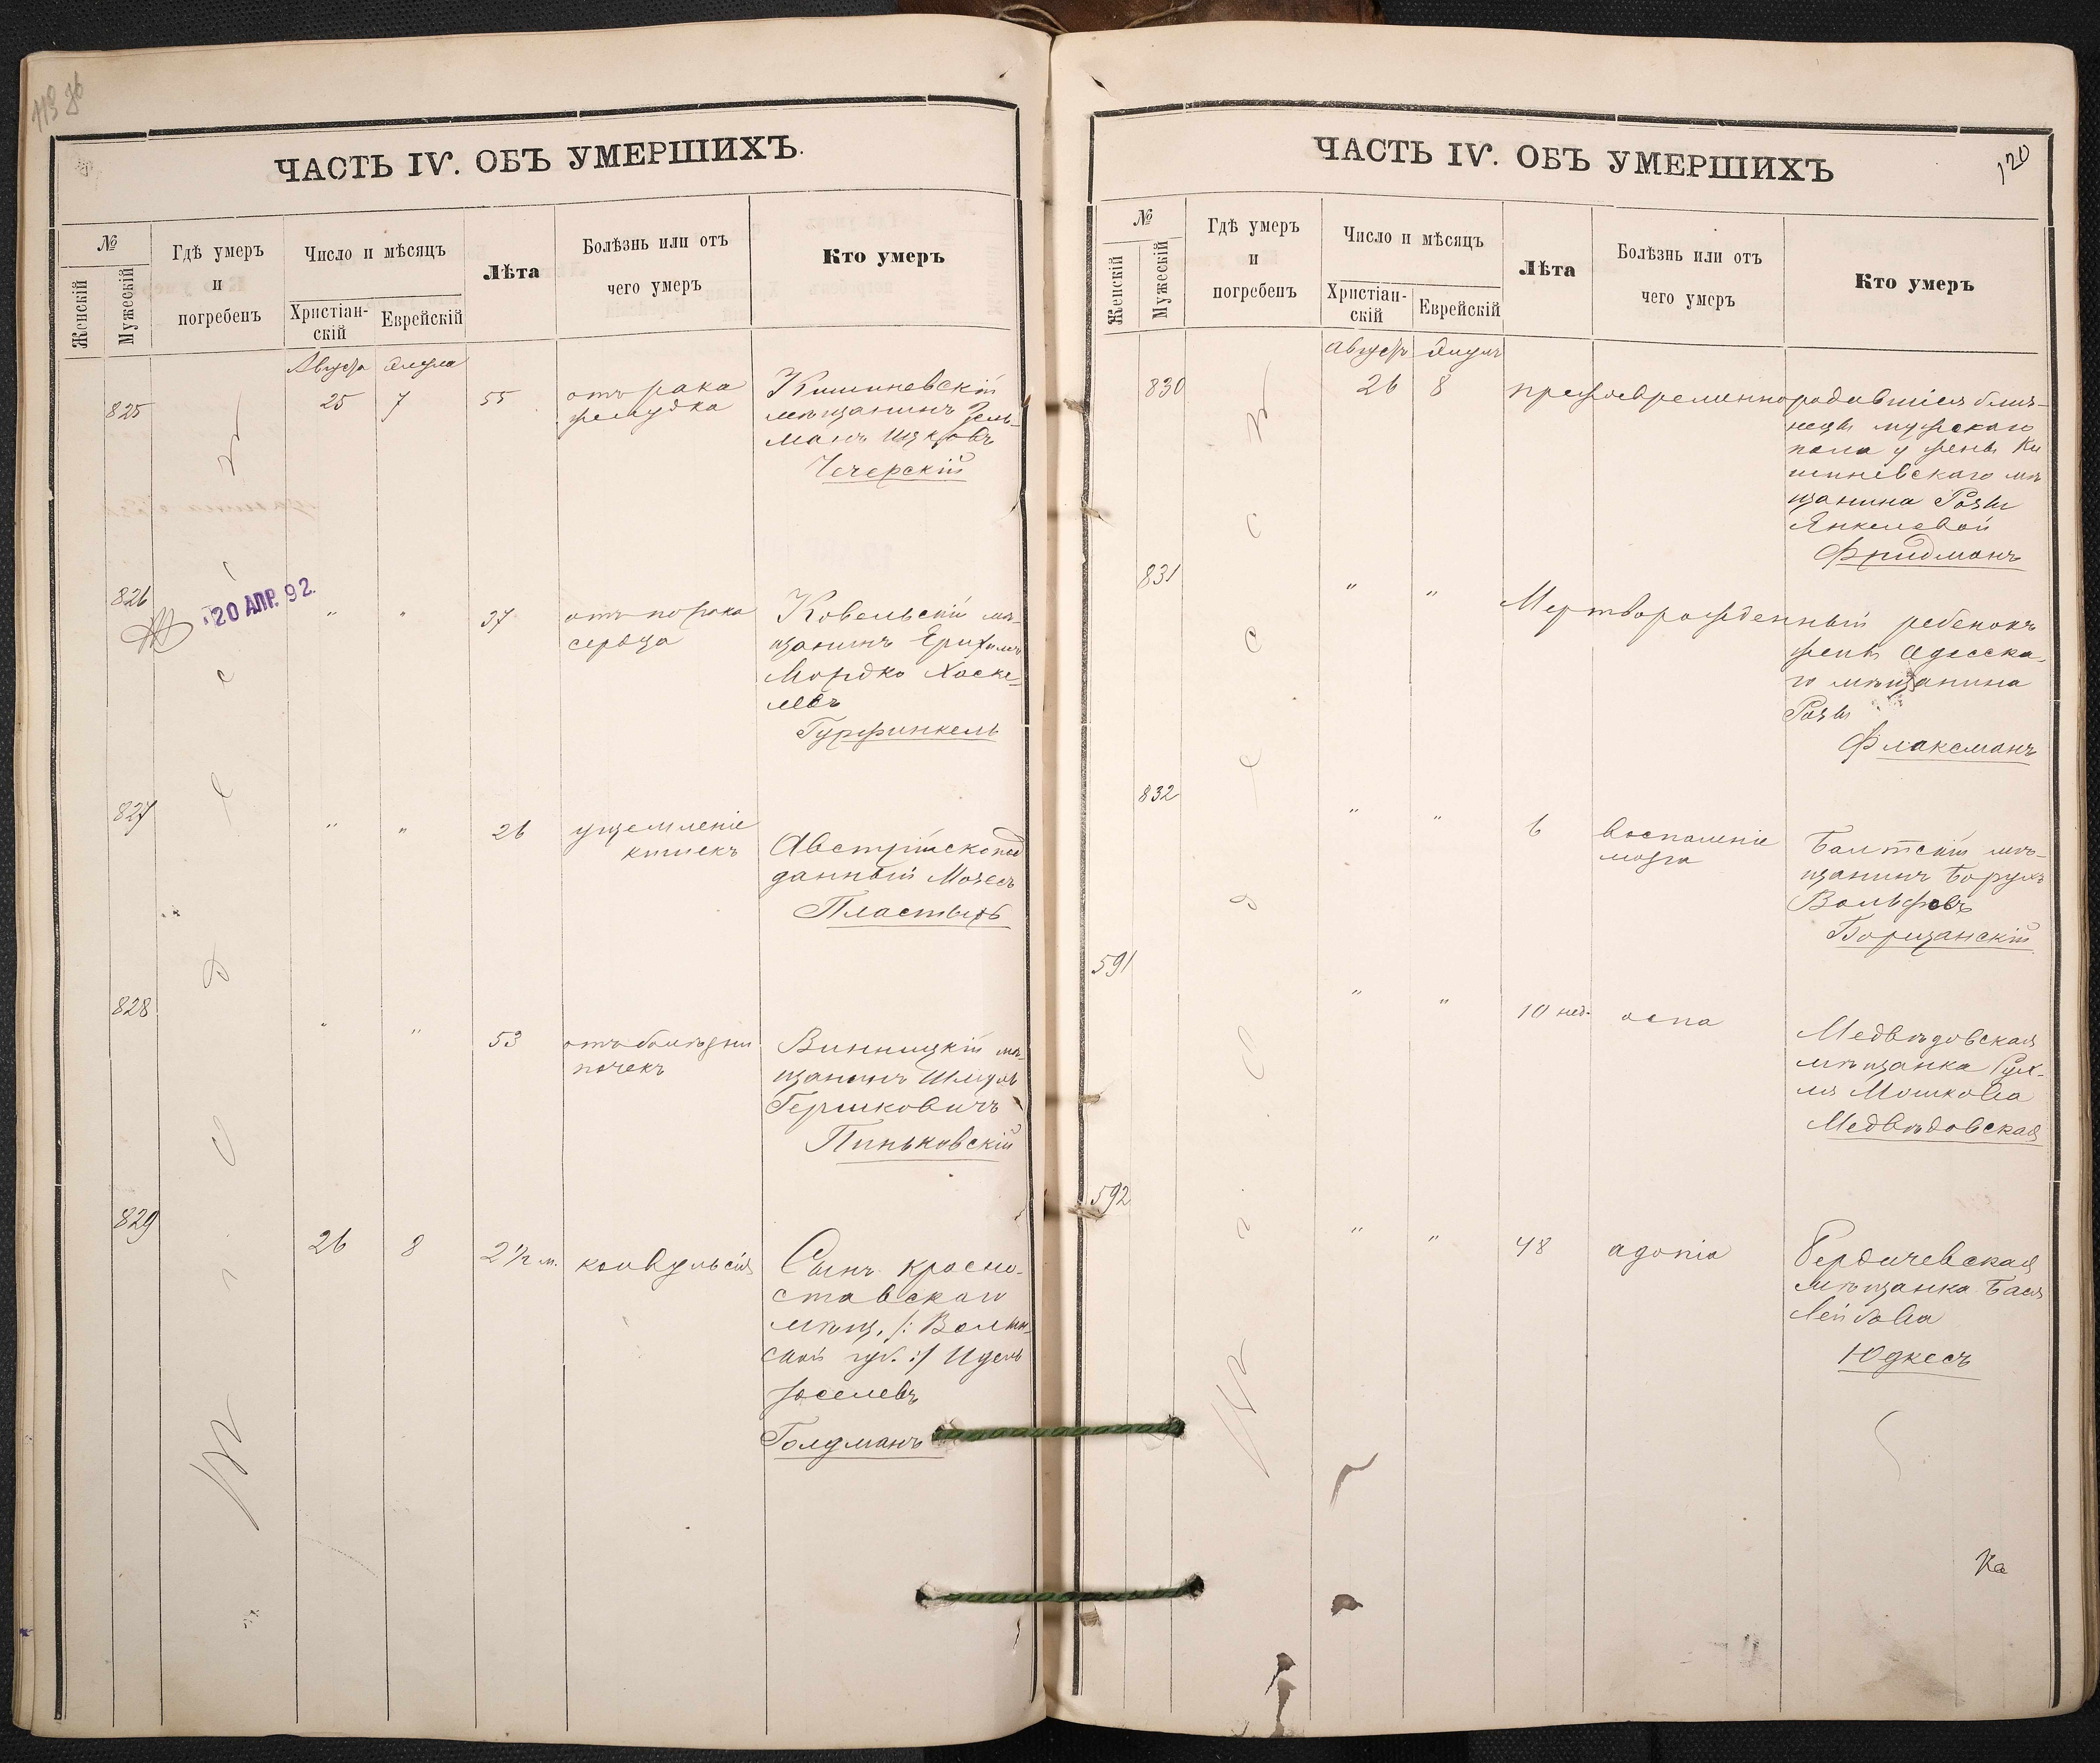 119 об
ЧАСТЬ IV. ОБЪ УМЕРШИХЪ.
№
Женскій
Мужескій
Гдѣ умеръ
и
погребенъ
Число и мѣсяцъ
Христіан-
скій
Еврейскій
Лѣта
Болѣзнь или отъ
чего умеръ
Кто умеръ
Августа Элула
825 25 7 55
отъ рака
желудка
Кишиневскій
мѣщанинъ Зель-
манъ Ицковъ
Чечерскій
826
20 АПР. 92.
" " 37
отъ порока
сердца
Ковельскій мѣ-
щанинъ
Мордко Хаске-
левъ
Гурфинкель
827 " " 26
ущемленіе
кишекъ
Австрійскопод
данный Мозесъ
828 " " 53
отъ болѣзни
почекъ
Винницкій мѣ-
щанинъ Шмуль
Гершковичъ
Пиньковскій
829 26 8 2 1/2 м. конвульсія
Сынъ красно-
ставскаго
мѣщ. /: Волын-
ской губ. :/ Идель
Іоселевъ
Голдманъ
въ г. Одессѣ
ЧАСТЬ IV. ОБЪ УМЕРШИХЪ
120
№
Женскій
Мужескій
Гдѣ умеръ
и
погребенъ
Число и мѣсяцъ
Христіан-
скій
Еврейскій
Лѣта
Болѣзнь или отъ
чего умеръ
Кто умеръ
Августъ Элулъ
830 26 8 преждевременнородившіеся близ-
нецы мужскаго
пола у жены Ки
шиневскаго мѣ
щанина Розы
Янкелевой
Фридманъ
831 " " Мертворожденный ребенокъ
жены Одесска-
го мѣщанина
Розы
Флаксманъ
832 " " 6
воспаленіе
мозга
Балтскій мѣ-
щанинъ Борухъ
Вольфовъ
Борщанскій
591 " " 10 нед. оспа
Медвѣдовская
мѣщанка Рух-
ля Мошкова
Медвѣдовская
592 " " 48 агонія
Бердичевская
мѣщанка Бася
Лейбова
Юдкесъ
въ г. Одессѣ
Ка